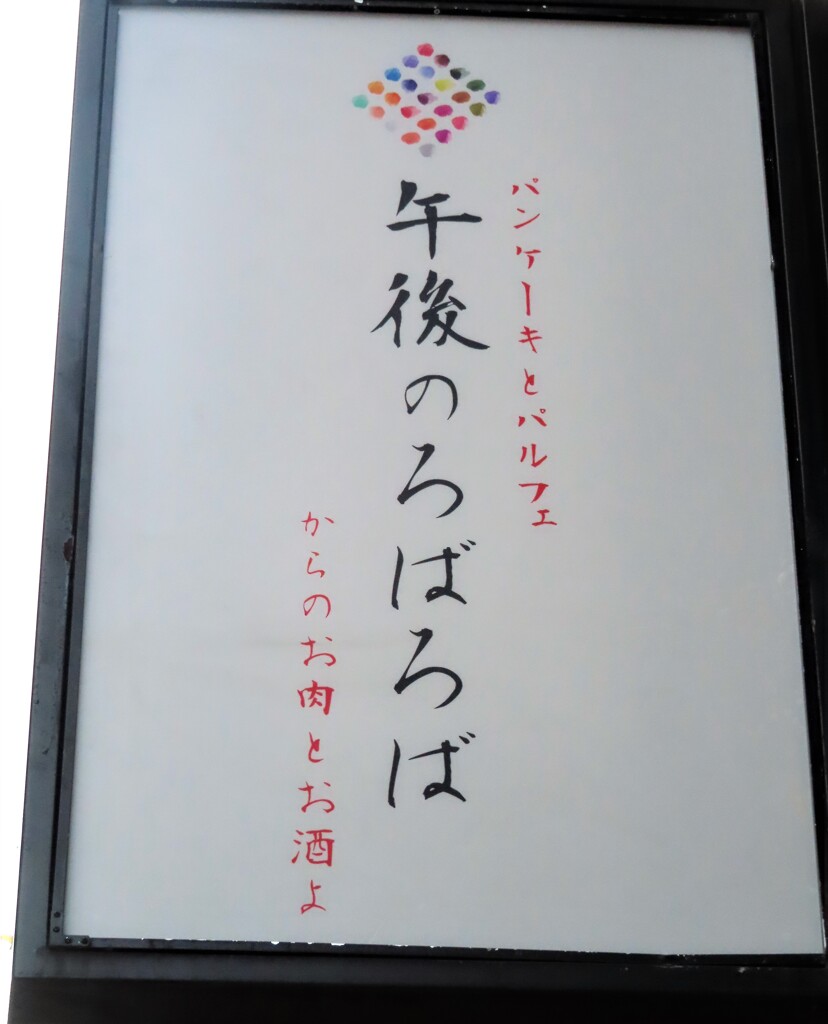 パンケーキとパルフェ
午後のろばろば
からのお肉とお酒よ